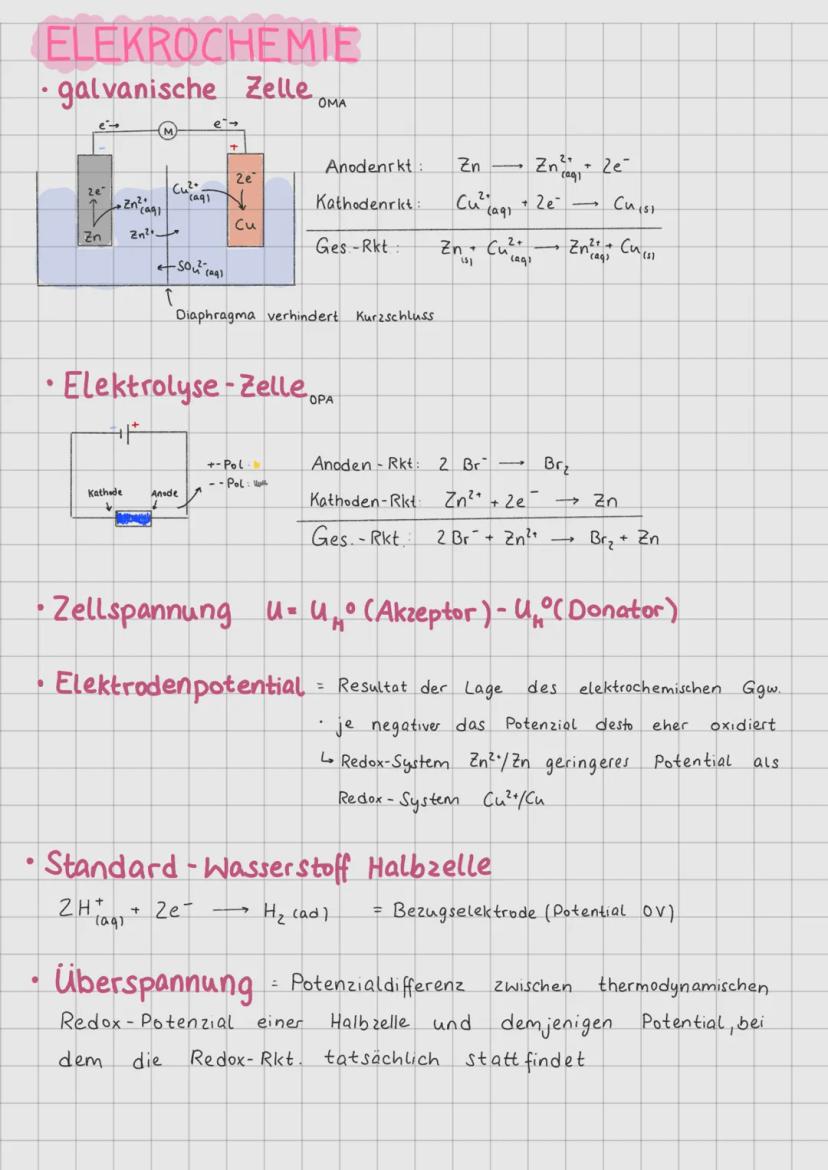 ELEKROCHEMIE
· galvanische Zelle OMA
e⁻→ M e⁻→
- +
2e⁻ Zn²⁺(aq) Zn Zn²⁺ Cu²⁺(aq) 2e⁻ Cu
←SO₄²⁻(aq)
Diaphragma verhindert Kurzschluss
Anodenrkt: Zn → Zn²⁺(aq) + 2e⁻
Kathodenrkt: Cu²⁺(aq) + 2e⁻ → Cu(s)
Ges.-Rkt: Zn(s) + Cu²⁺(aq) → Zn²⁺(aq) + Cu(s)
· Elektrolyse-Zelle OPA
- +
Kathode Anode
+-Pol:
--Pol:
Anoden-Rkt: 2 Br⁻ → Br₂
Kathoden-Rkt: Zn²⁺ + 2e⁻ → Zn
Ges.-Rkt.: 2 Br⁻ + Zn²⁺ → Br₂ + Zn
· Zellspannung U = U_H⁰ (Akzeptor) - U_H⁰ (Donator)
· Elektrodenpotential = Resultat der Lage des elektrochemischen Ggw.
· je negativer das Potenzial desto eher oxidiert
↳ Redox-System Zn²⁺/Zn geringeres Potential als
Redox-System Cu²⁺/Cu
· Standard-Wasserstoff Halbzelle
2H⁺(aq) + 2e⁻ → H₂(ad) = Bezugselektrode (Potential 0V)
· Überspannung = Potenzialdifferenz zwischen thermodynamischen
Redox-Potenzial einer Halbzelle und demjenigen Potential, bei
dem die Redox-Rkt. tatsächlich stattfindet